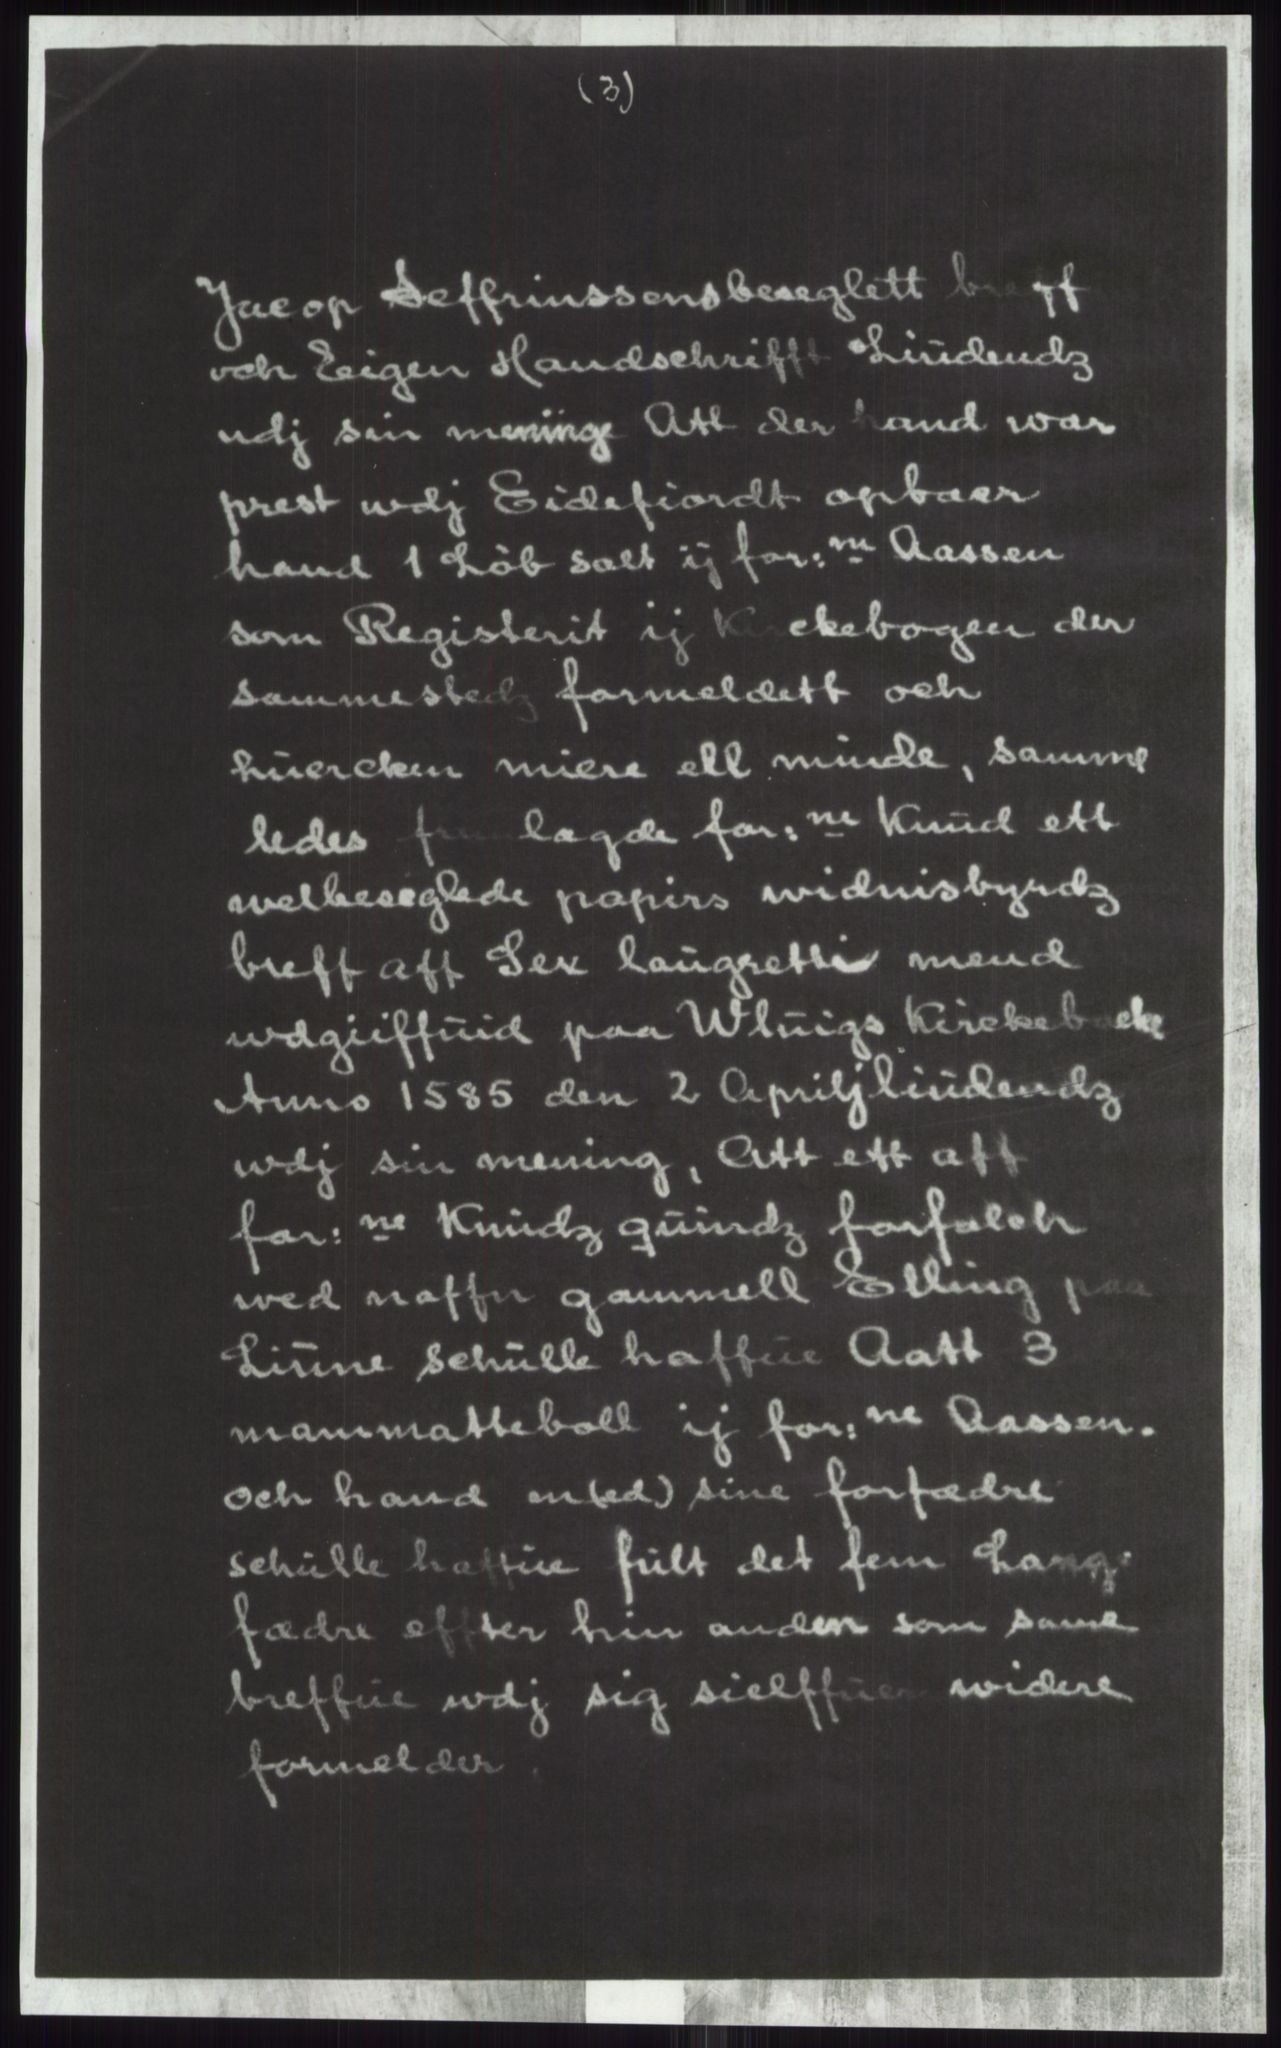 (3)
Jacop Seffrinssens beseglett breff
och Eigen Handschrifft Liüdendz
udj sin meninge Att der hand war
prest wdj Eidefiordt opbaer
hand 1 Löb salt ij for:ne Aassen
som Registerit ij Kirckebogen der
sammestedz formeldett och
hüercken miere ell minde, samme
ledes fremlagde for:ne Knüd ett
welbeseglede papirs widnisbyrdz
breff aff Sex laügretti mend
wdgiiffüid paa Wlüigs Kirckebacke
Anno 1585 den 2 Aprilj liüdendz
wdj sin mening, Att ett aff
for:ne Knüdz qüindz forfaloh
wed naffn gammell Elling paa
Liüne schülle haffüe Aatt 3
mammatteboll ij for:ne Aassen.
och hand m(ed) sine forfædre
schülle haffüe fült det fem Lang-
fædre effter hin anden som same
breffüe wdj sig sielffüer widere
formelder.